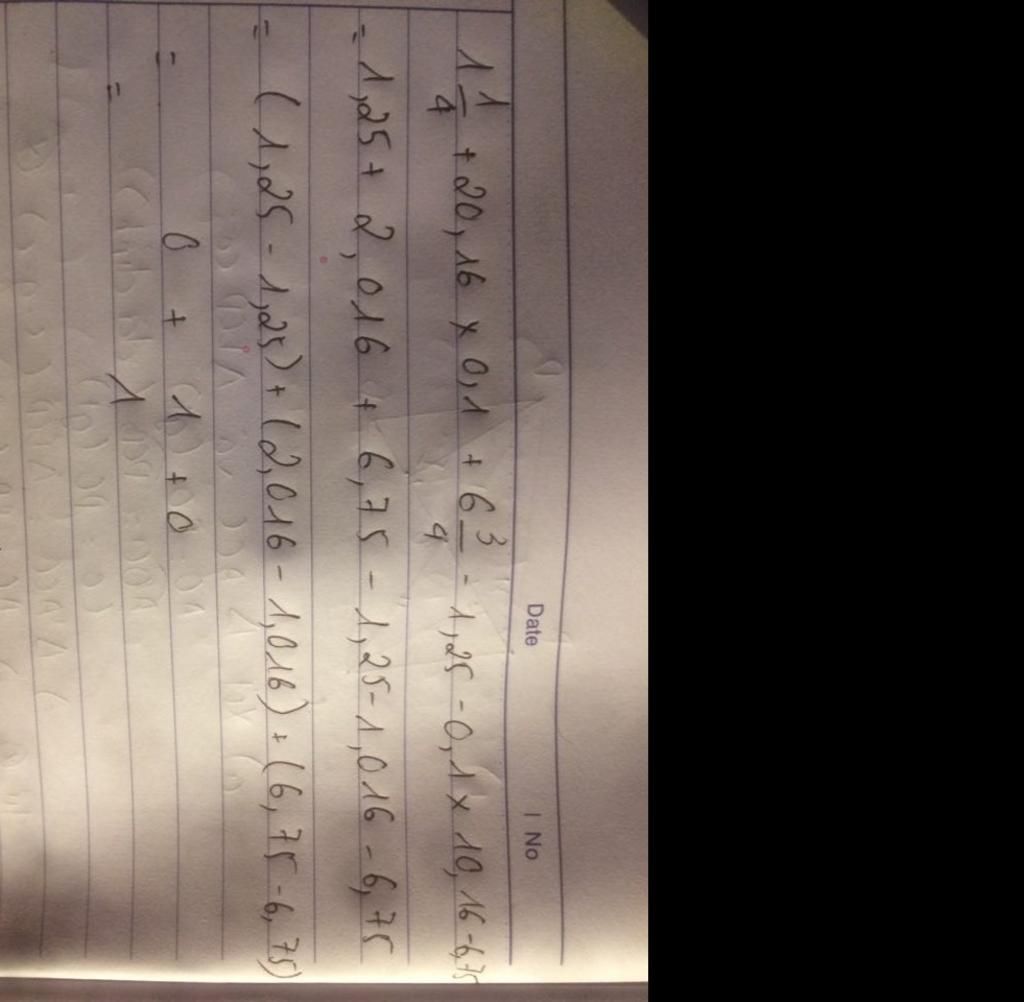 Date | No
1 1/4 + 20,16 x 0,1 + 6 3/4 - 1,25 - 0,1 x 10,16 - 6,75
= 1,25 + 2,016 + 6,75 - 1,25 - 1,016 - 6,75
= (1,25 - 1,25) + (2,016 - 1,016) + (6,75 - 6,75)
= 0 + 1 + 0
= 1